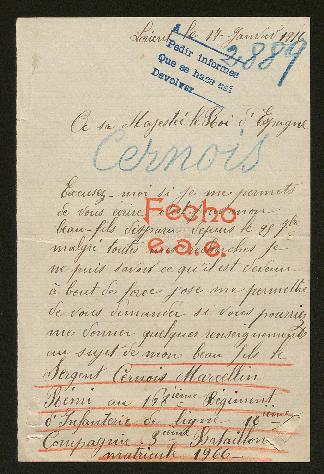 Lorient le 17 Janvier 1916
A
Pedir informes
Que se hace así
Devolver
2889
A sa Majesté le Roi d'Espagne
Cernois
Excusez-moi si je me permets
de vous écrire mon
Fecho
beau-fils disparu depuis le 28
malgré toutes mes recherches je
e.a.e.
ne puis savoir ce qu'il est devenu
à bout de force j'ose me permettre
de vous demander si vous pourriez
me donner quelques renseignements
au sujet de mon beau fils le
Sergent Cernois Marcellin
Rémi au Régiment
d'Infanterie de Ligne
Compagnie Bataillon
matricule 1966